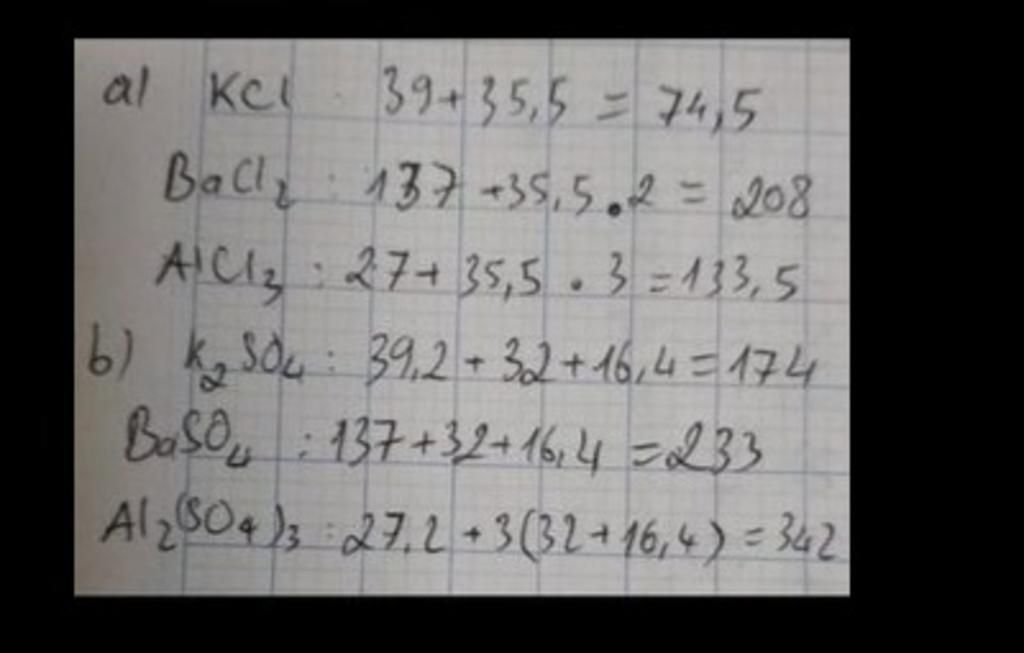 a) KCl : 39 + 35,5 = 74,5
BaCl₂ : 137 + 35,5 . 2 = 208
AlCl₃ : 27 + 35,5 . 3 = 133,5
b) K₂SO₄ : 39.2 + 32 + 16,4 = 174
BaSO₄ : 137 + 32 + 16,4 = 233
Al₂(SO₄)₃ : 27.2 + 3(32 + 16,4) = 342